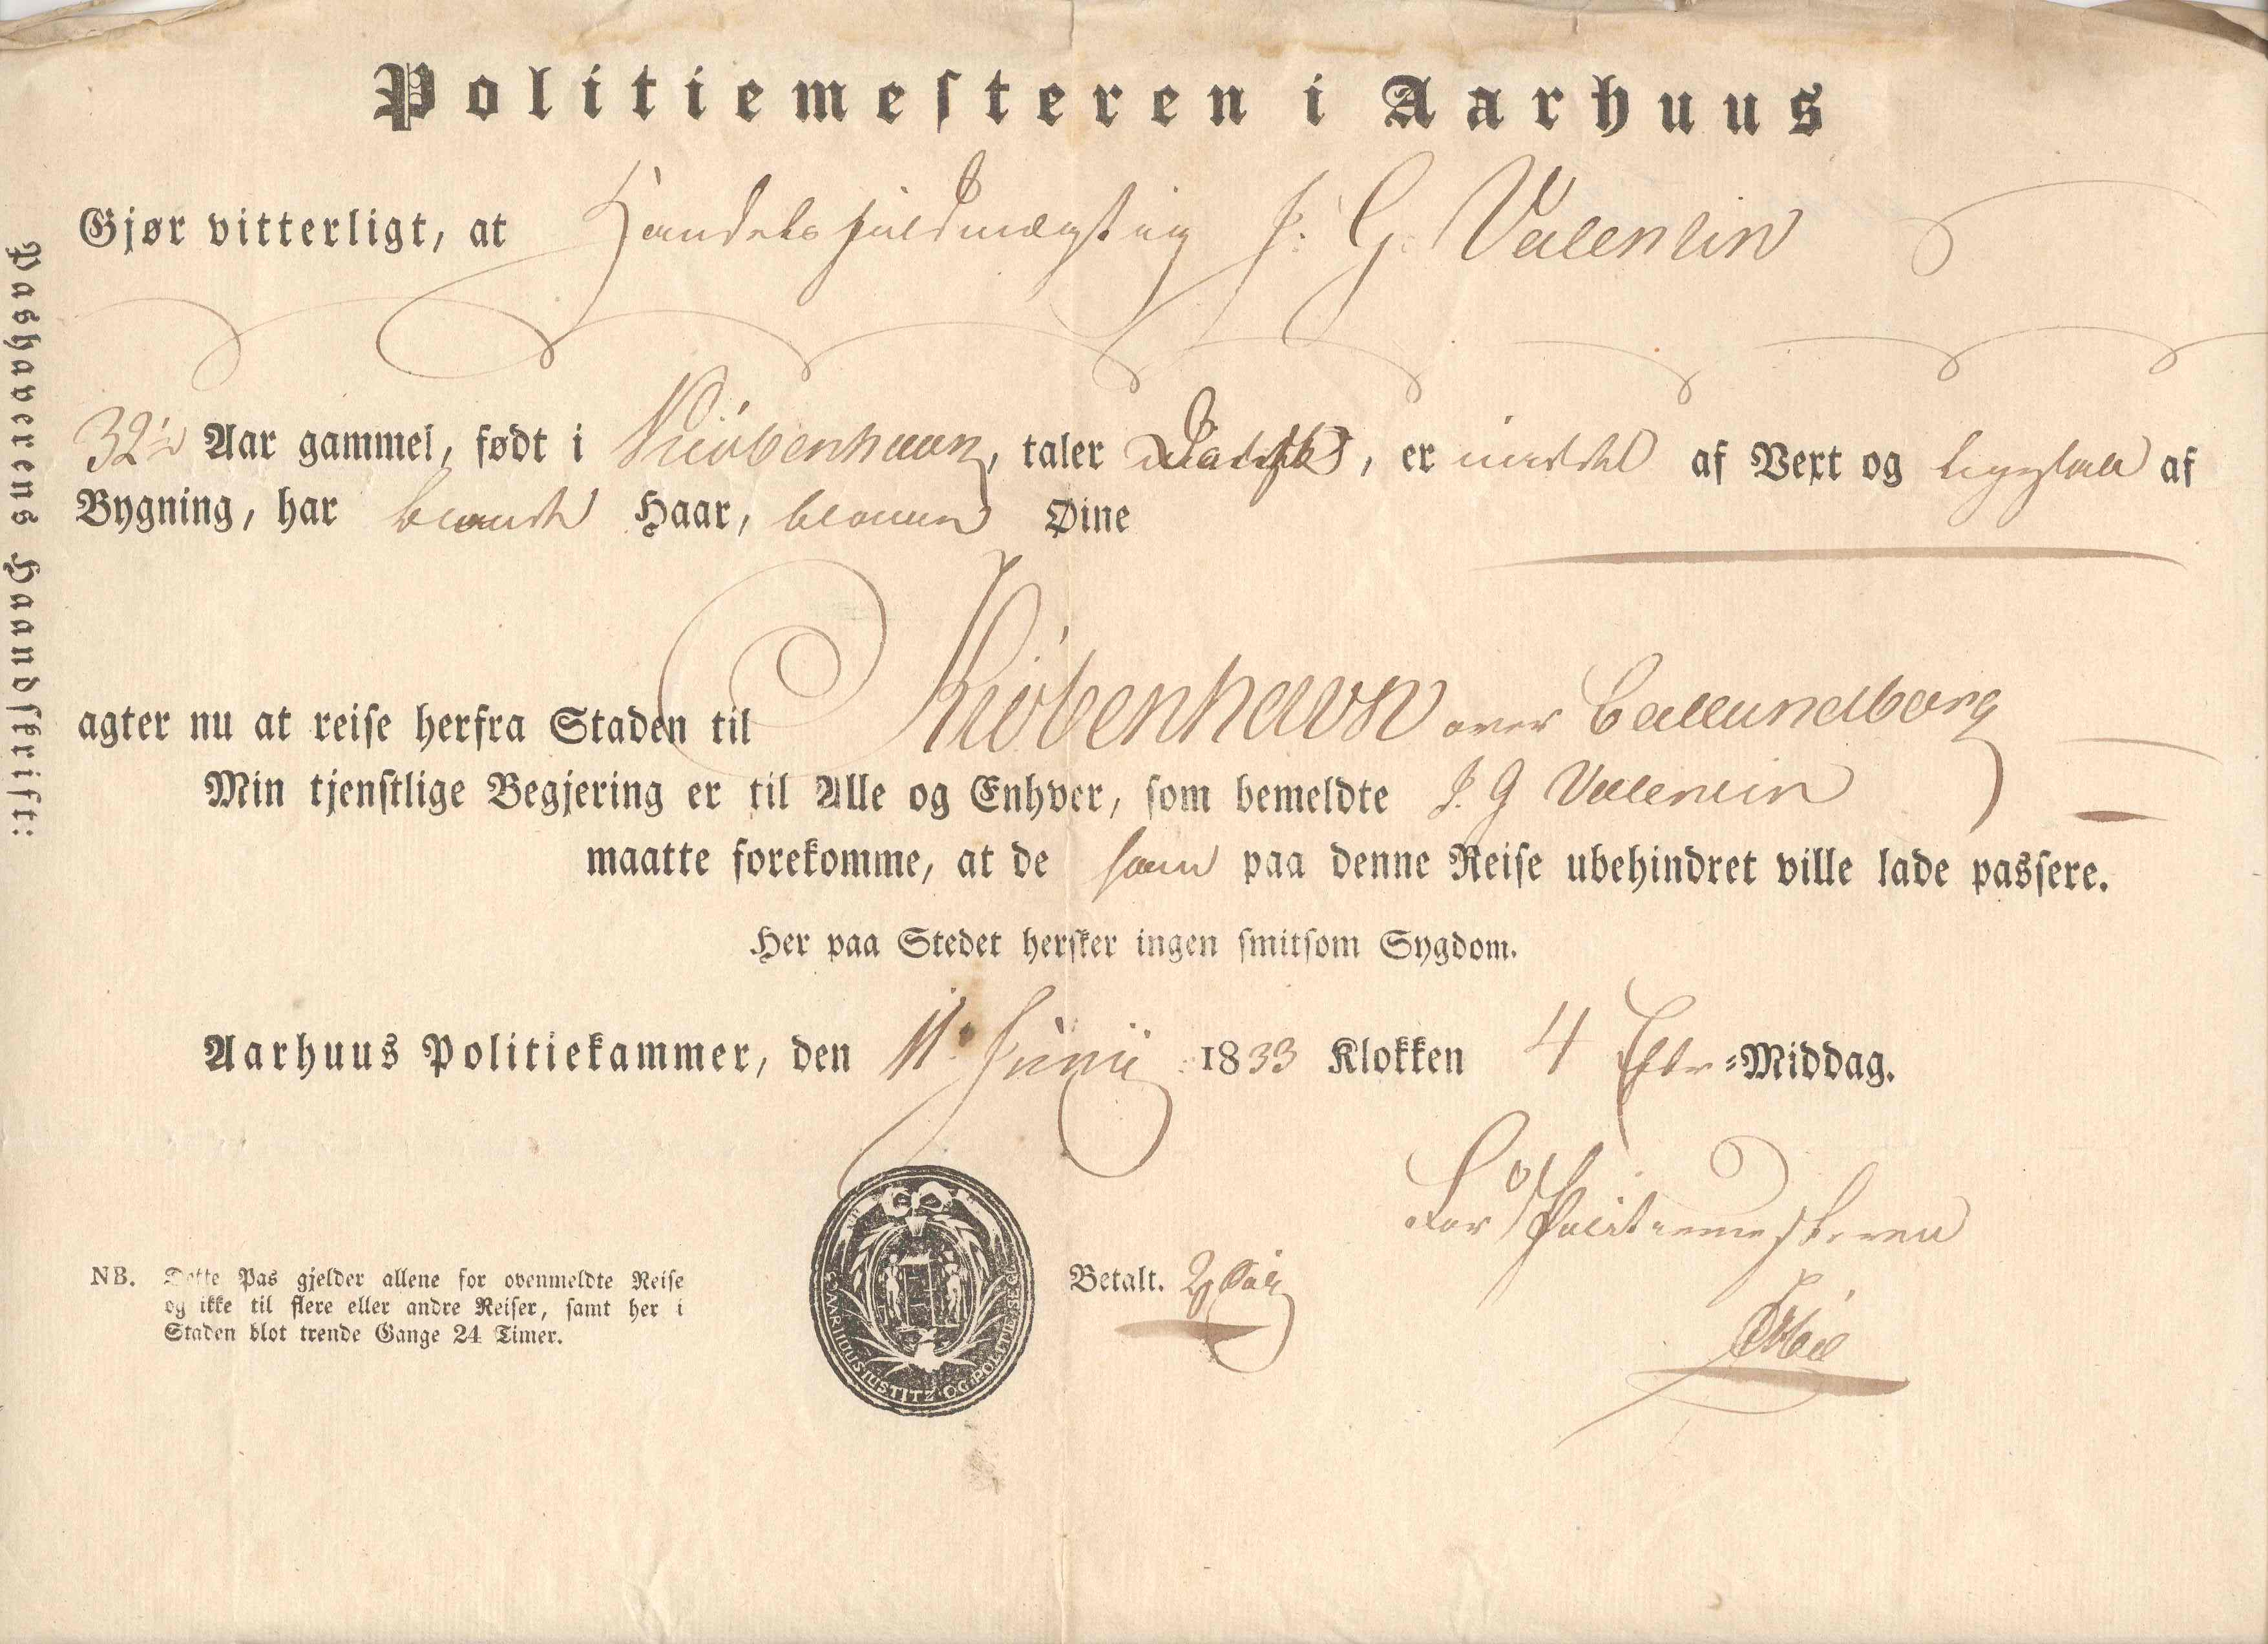 Politiemesteren i Aarhuus
Gjør vitterligt, at Handelsfuldmægtig J: G. Valentin
32 Aar gammel, født i Kiøbenhavn, taler Dansk, er middel af Vext og af
Bygning, har blondt Haar, blaae Øine
agter nu at reise herfra Staden til Kiøbenhavn over Callundborg
Min tjenstlige Begjering er til Alle og Enhver, som bemeldte J. G Valentin
maatte forekomme, at de ham paa denne Reise ubehindret ville lade passere.
Her paa Stedet hersker ingen smitsom Sygdom.
Aarhuus Politiekammer, den 11 Junii 1833 Klokken 4 Efter-Middag.
For Politiemesteren
Betalt. 2
NB. Dette Pas gjelder allene for ovenmeldte Reise
og ikke til flere eller andre Reiser, samt her i
Staden blot trende Gange 24 Timer.
AARHUUS IUSTITZ OG POLITIE
Pashaverens Haandskrift: